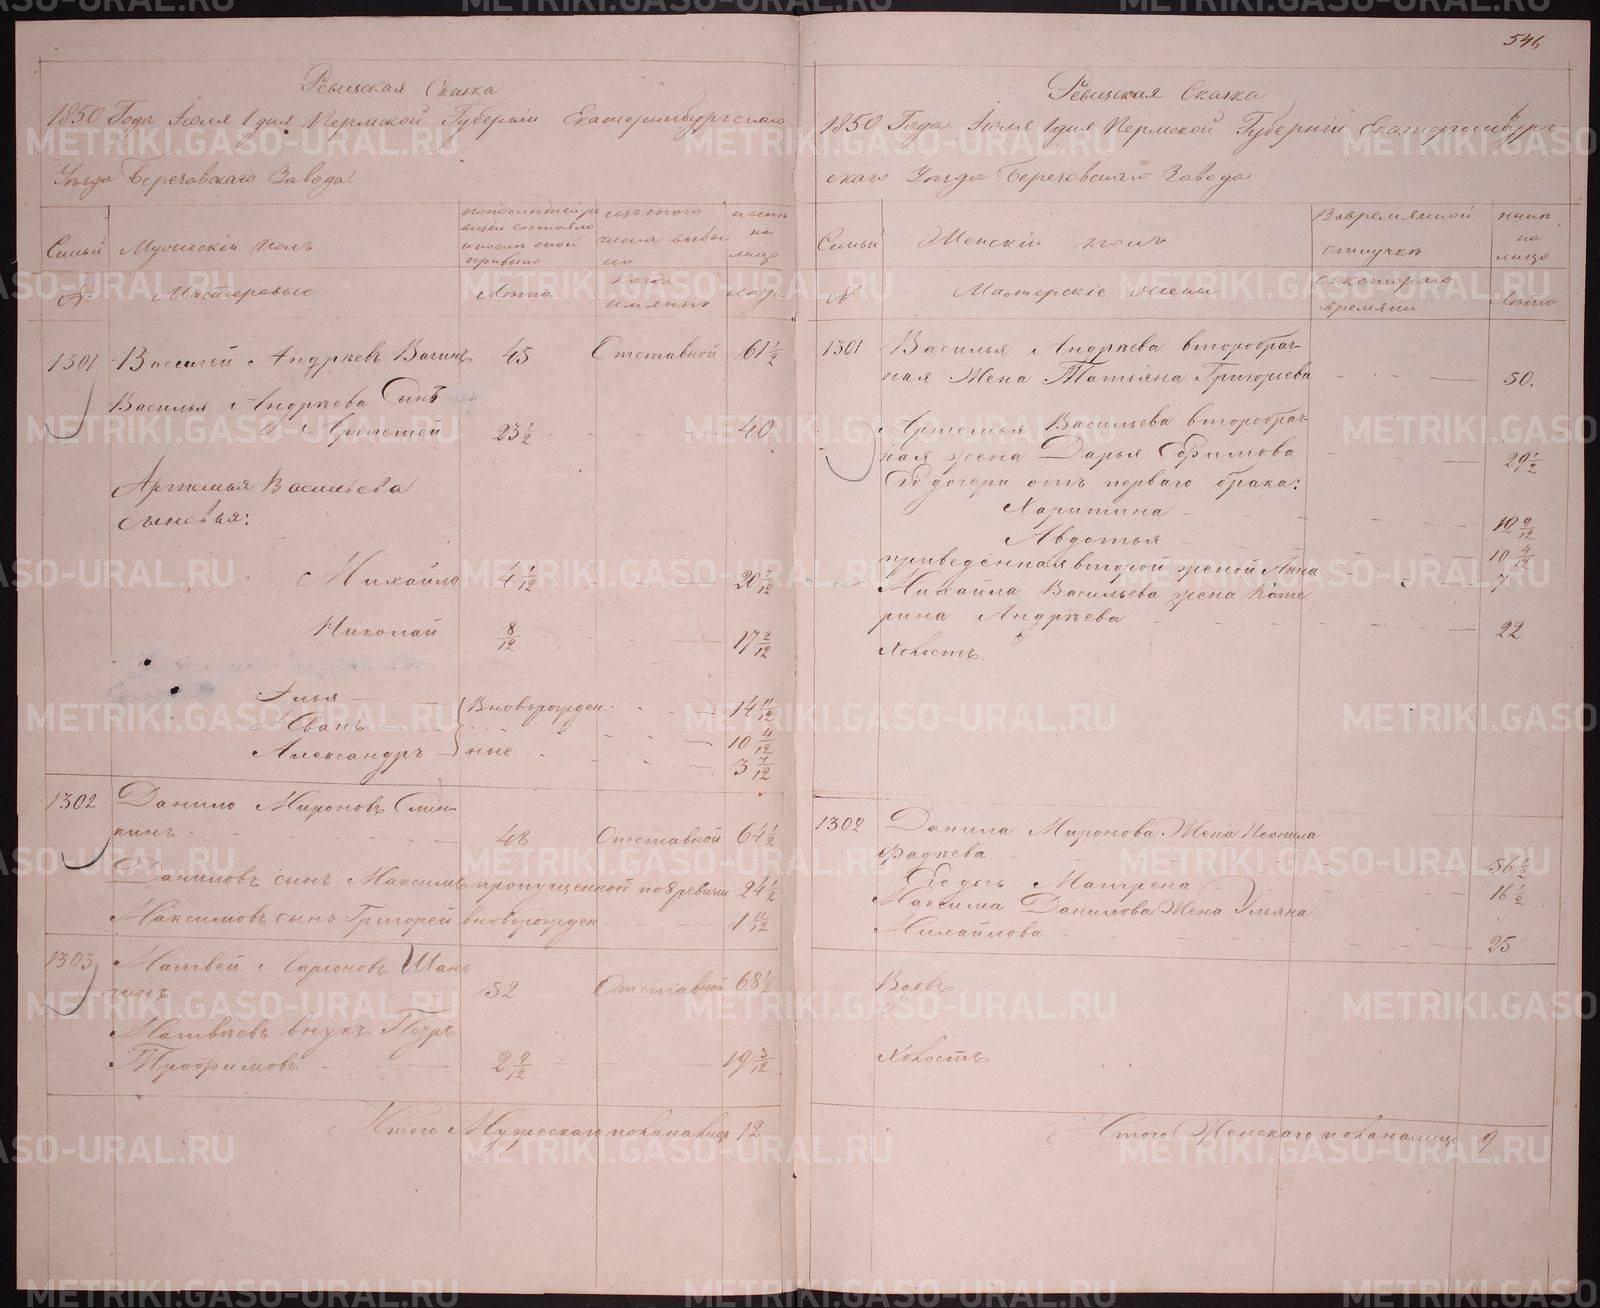 546
Ревизская Сказка
1850 Года Іюля 1 дня Пермской Губерніи Екатеринбургскаго
Уезда Березовскаго Завода.
Семьи
Мужескій полъ
по последней ре
визіи состояло
и после оной
прибыло
изъ того
числа выбы
ло
ныне
на
лицо
№
Мастеровые
Лета
Когда
имянно
Лета
1301 Василей Андреевъ Вагинъ 45 Отставной 61 1/2
Василья Андреева Сынъ
Артемей 23 1/2 40
Артемья Васильева
сыновья:
Михайло 4 1/12 20 7/12
Николай 8/12 17 2/12
Илья Вновьрожден- 14 11/12
Иванъ 10 4/12
Александръ ные 3 7/12
1302 Данило Мироновъ
кинъ 48 Отставной 64 1/2
Даниловъ сынъ Максимъ пропущенной по 8 ревизіи 24 1/2
Максимовъ сынъ Григорей вновьрожден 1 11/12
1303 Матвей Ларіоновъ Шань
гинъ 52 Отставной 68 1/2
Матвеевъ внукъ Петръ
Трофимовъ 2 9/12 19 3/12
Итого Мужескаго пола налицо 12
Ревизская Сказка
1850 Года Іюля 1 дня Пермской Губерніи Екатеринбург-
скаго Уезда Березовскаго Завода
Семьи
Женскій полъ
Вовремянной
отлучке
ныне
на
лицо
№
Мастерскіе жены
Съ котораго
времяни
Лета
1301 Василья Андреева второбрач-
ная Жена Татьяна Григорьева 50.
Артемья Васильева второбрач-
ная жена Дарья Ефимова 29 1/2
Его дочери отъ перваго брака:
Харитина 12 9/12
Авдотья 10 4/12
приведенная второй женой Анна 7
Михайла Васильева жена Кате
рина Андреева 22
Холостъ
1302 Данила Миронова Жена Неонила
Фадеева 56 1/2
Его дочь Матрена 16 1/2
Максима Данилова Жена Ульяна
Михайлова 25
Вдовъ
Холостъ
Итого Женскаго пола налицо 9
METRIKI.GASO-URAL.RU